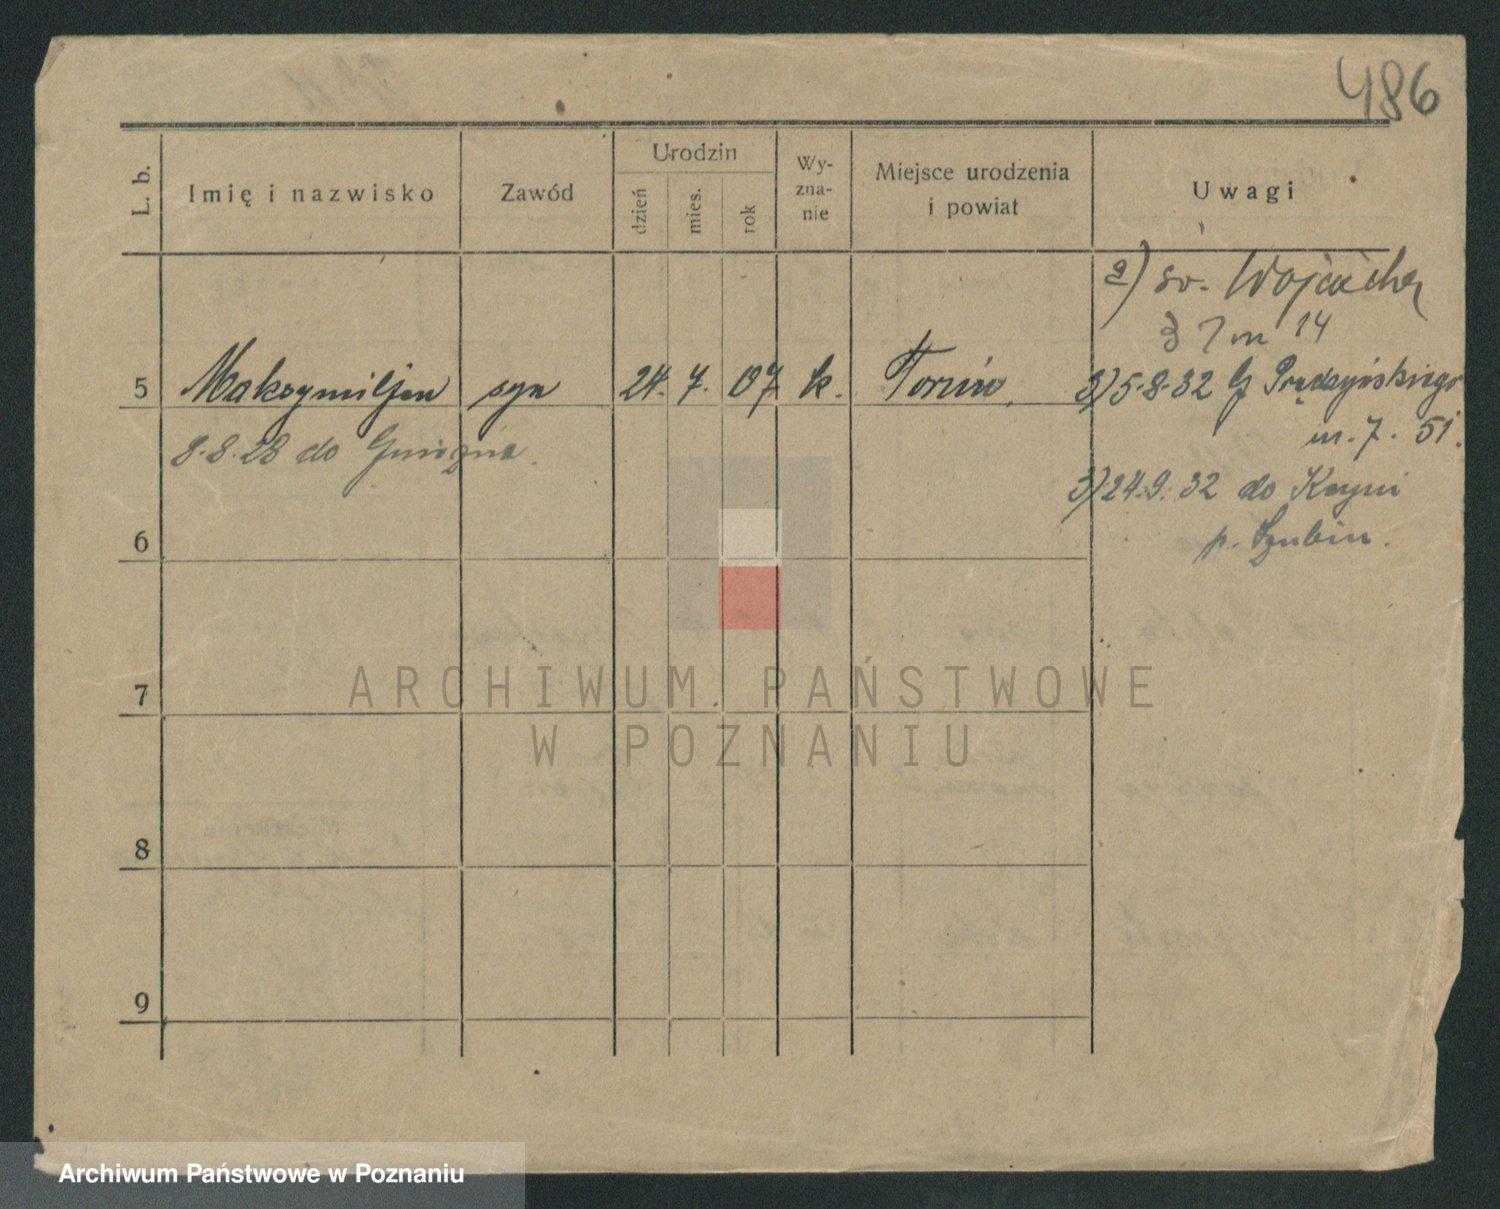 486
L. b.
Imię i nazwisko
Zawód
Urodzin
dzień
mies.
rok
Wy-
zna-
nie
Miejsce urodzenia
i powiat
Uwagi
2) św. Wojciecha
3 7 m 14
5 Maksymiljan syn 24. 7. 07 k. Toruń.
3) 5-8-32 G. Prądzyńskiego
m. 7. 51.
8-8-28 do Gniezna.
3) 24.9.32 do Kcyni
p. Szubin.
6
7
8
9
ARCHIWUM PAŃSTWOWE
W POZNANIU
Archiwum Państwowe w Poznaniu